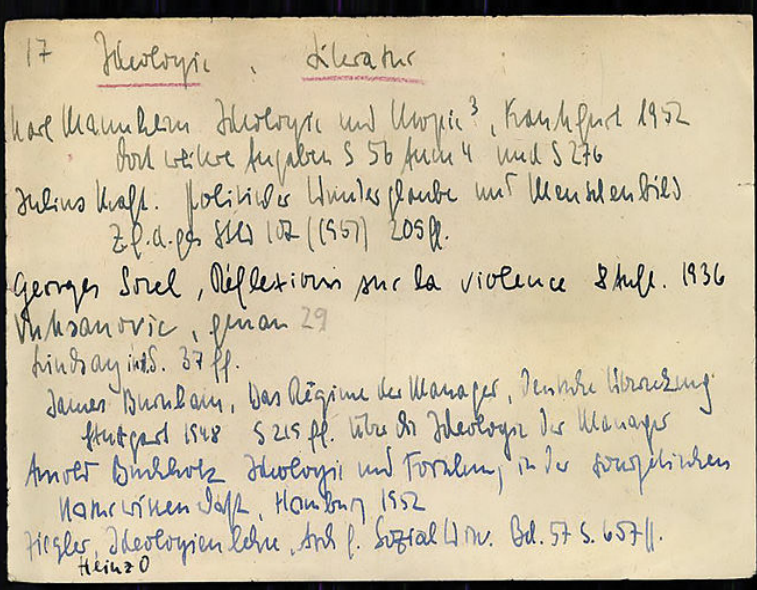 17 Ideologie, Literatur
Karl Mannheim Ideologie und Utopie³, Frankfurt 1952
dort weitere Angaben S 56 Anm 4 und S 276
Julius Kraft. Politischer Wunderglaube und Menschenbild
Z.f.d.ges StW 107 (1951) 205ff.
Georges Sorel, Réflexions sur la violence 8 Aufl. 1936
Vuksanovic, genau 29
Lindsay S. 37 ff.
James Burnham, Das Régime der Manager, Deutsche Übersetzung
Stuttgart 1948 S 215 ff. über die Ideologie der Manager
Arnold Buchholz Ideologie und Forschung in der sowjetischen
Naturwissenschaft, Hamburg 1952
Ziegler, Ideologienlehre, Arch f. Sozial Wiss. Bd. 57 S. 657ff.
Heinz O